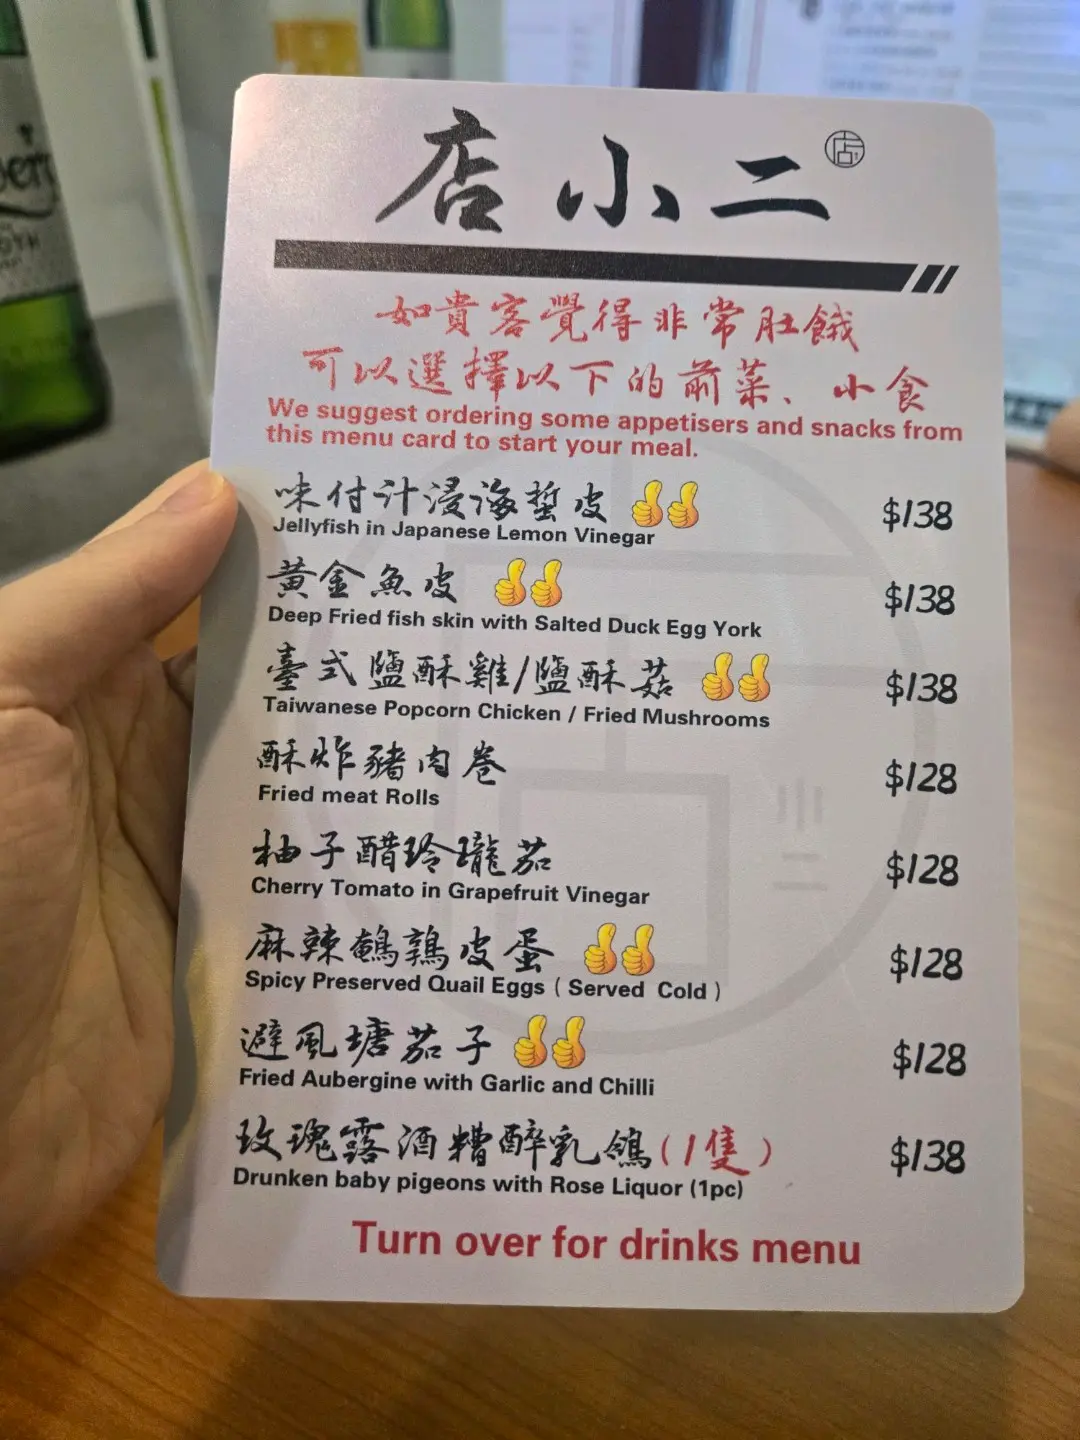 店小二
如貴客覺得非常肚餓
可以選擇以下的前菜、小食
We suggest ordering some appetisers and snacks from
this menu card to start your meal.
味付汁浸海蜇皮 $138
Jellyfish in Japanese Lemon Vinegar
黃金魚皮 $138
Deep Fried fish skin with Salted Duck Egg York
臺式鹽酥雞/鹽酥菇 $138
Taiwanese Popcorn Chicken / Fried Mushrooms
酥炸豬肉卷 $128
Fried meat Rolls
柚子醋玲瓏茄 $128
Cherry Tomato in Grapefruit Vinegar
麻辣鵪鶉皮蛋 $128
Spicy Preserved Quail Eggs ( Served Cold )
避風塘茄子 $128
Fried Aubergine with Garlic and Chilli
玫瑰露酒糟醉乳鴿(1隻) $138
Drunken baby pigeons with Rose Liquor (1pc)
Turn over for drinks menu